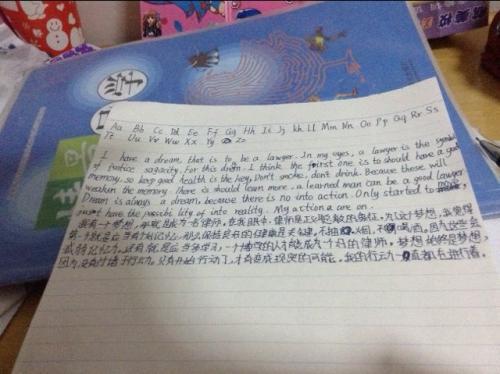 Aa Bb Cc Dd Ee Ff Gg Hh Ii Jj kk Ll Mm Nn Oo Pp Qq Rr Ss
Tt Uu Vv Ww Xx Yy Zz
I have a dream, that is to be a lawyer. In my eyes, a lawyer is the symbol
of justice sagacity. For this dream. I think the first one is to should have a good
memory. so keep good health is the key. Don't smoke, don't drink. Because these will
weaken the memory. There is should learn more. a learned man can be a good lawyer
Dream is always a dream, because there is no into action. Only started to
have the possibi lity of into reality. My action are on.
我有一个梦想,那就是成为一名律师,在我眼中,律师是正义的象征,为了这个梦想,我觉得
第一个就是应当有个好记忆,那么保持良好的健康是关键。不抽烟,不喝酒。因为这些会
减弱记忆力。还有就是应当多学习,一个博学的人才能成为一个好的律师。梦想始终是梦想,
因为没有付诸于行动,只有开始行动了,才有变成现实的可能。我的行动一直都在进行着。